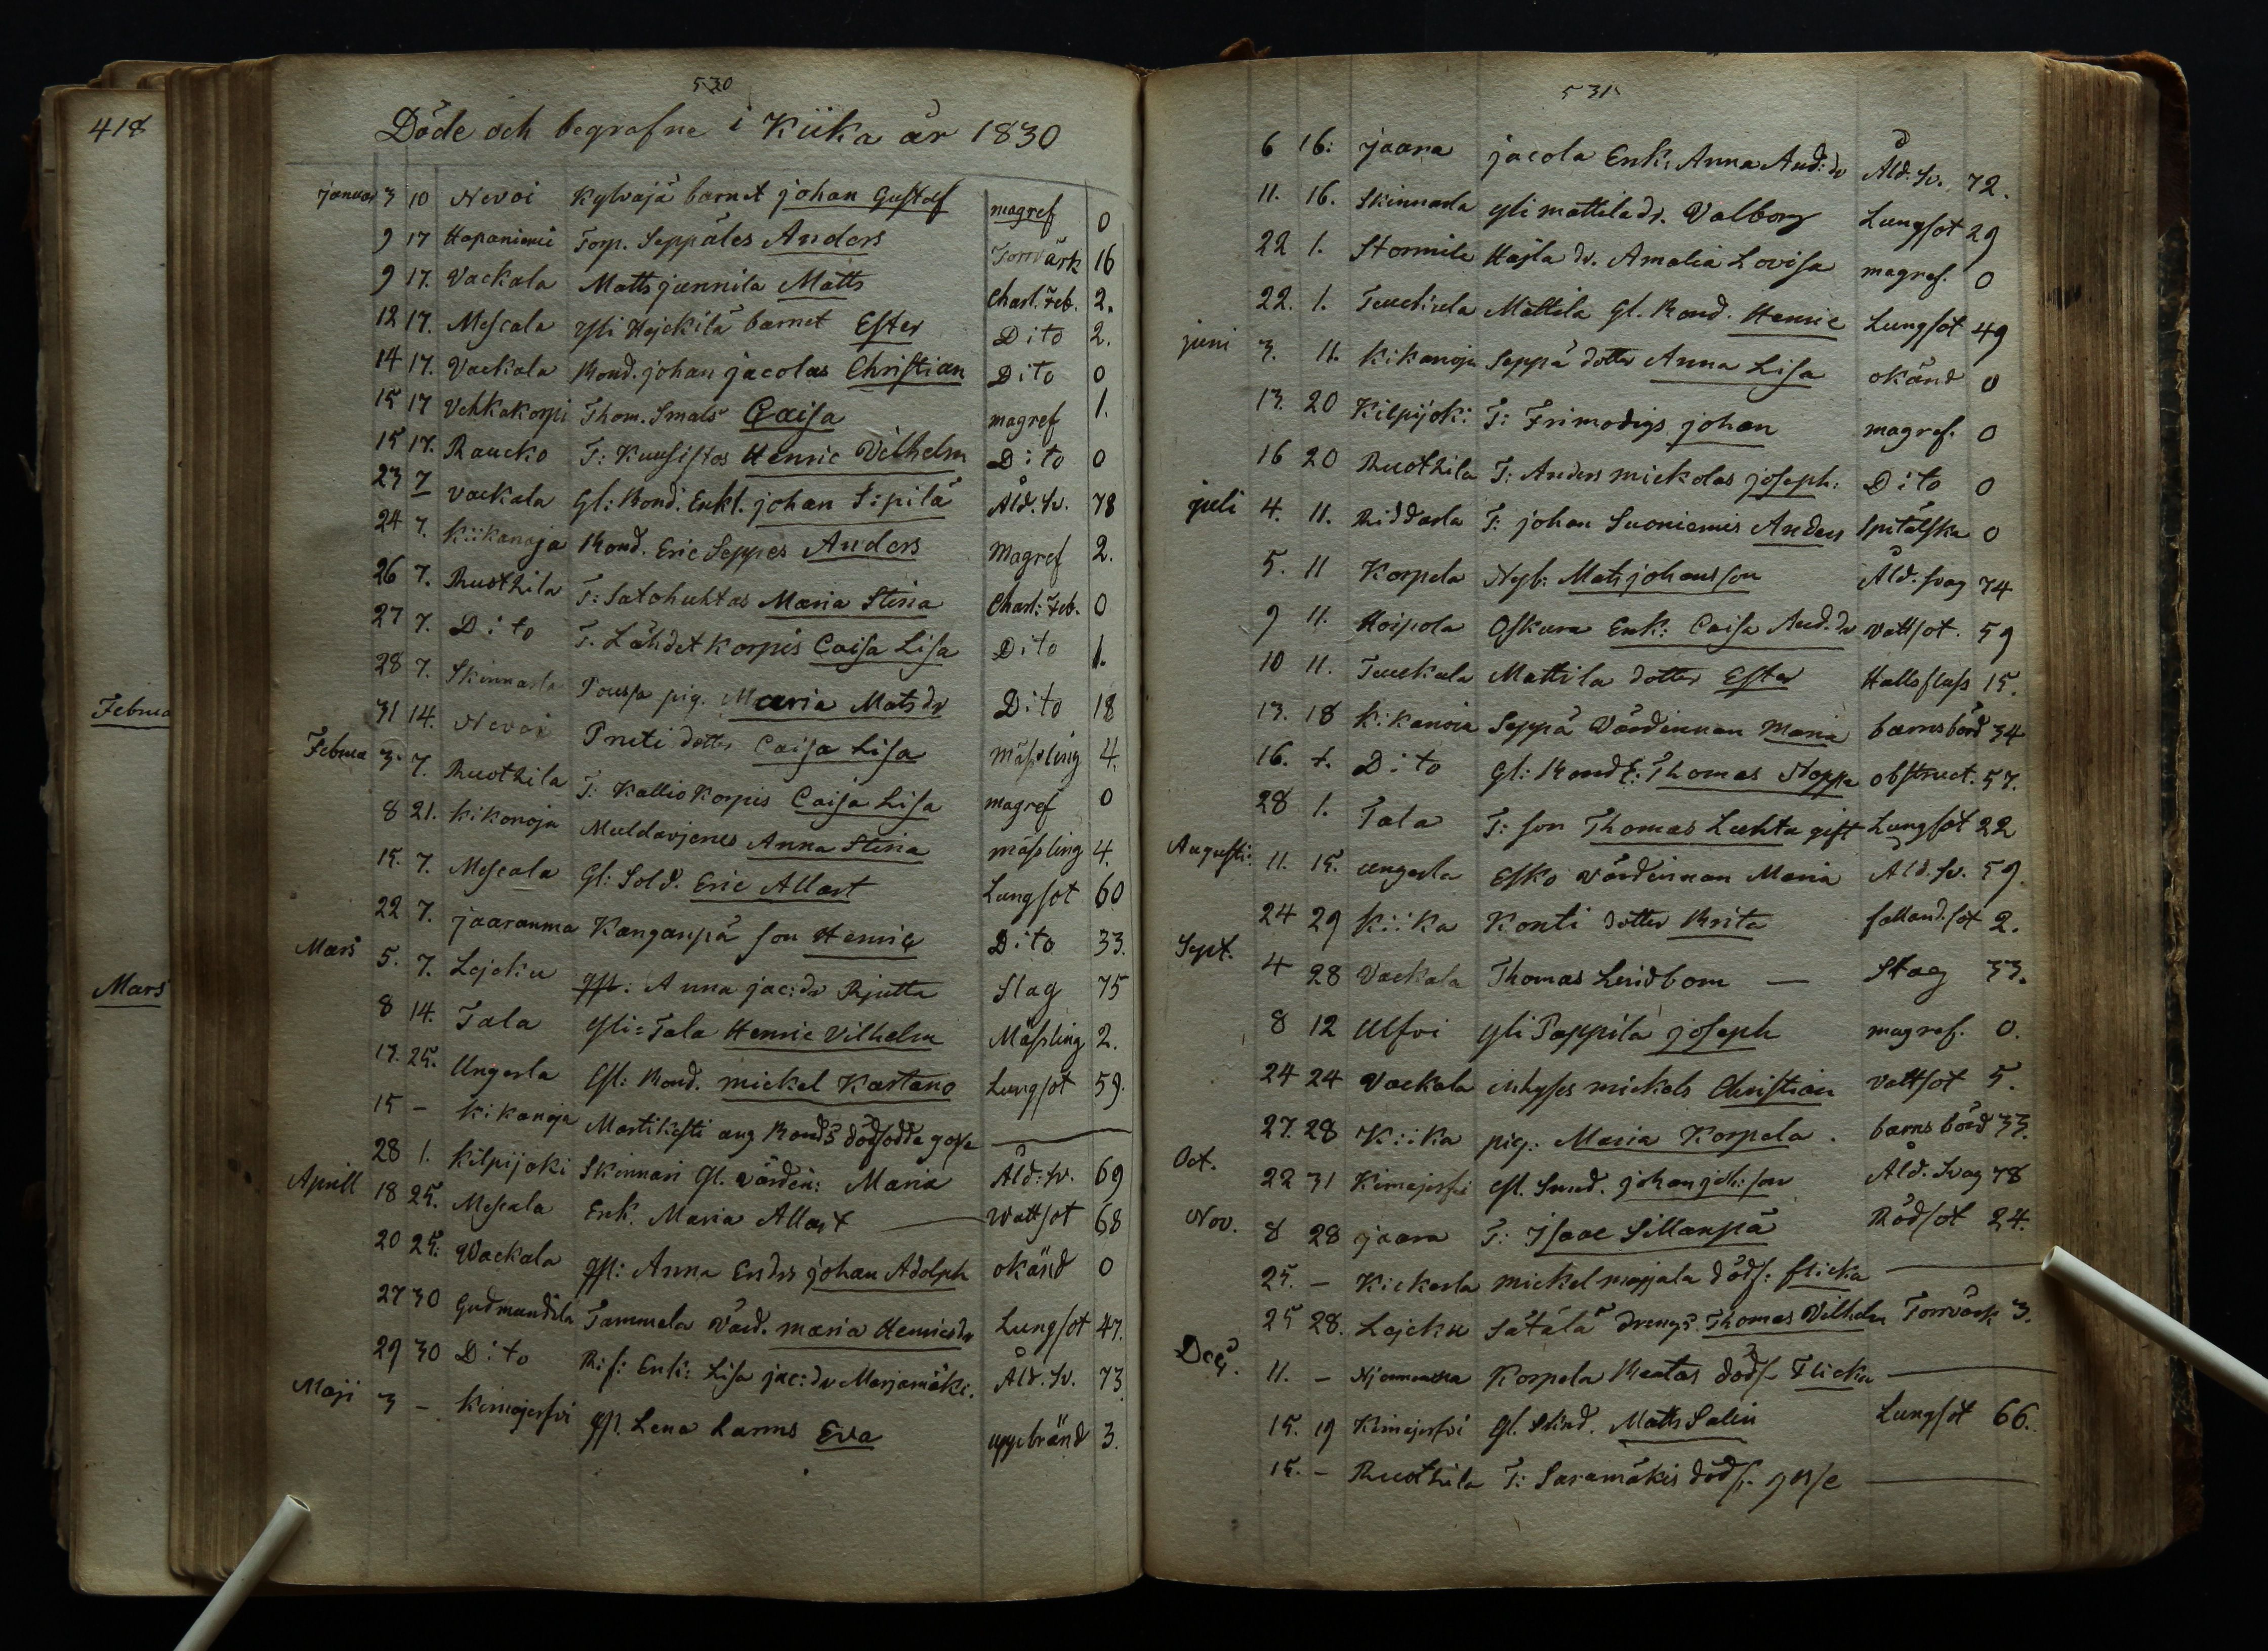 418
Februa
Mars
530
Döde och begrafne i Kiika år 1830
Januar 3 10 Nevoi Kylvajä barnet johan Gustaf magref 0
9 17 Hapaniemi Torp. Seppäles Anders Torrvärk 16
9 17. Vackala Matts jannila Matts Charl. Feb. 2.
12 17. Mescala Yli Hejckilä barnet Ester Dito 2.
14 17. Vackala Bond. johan jacolas Christian Dito 0
15 17 Vehkakorpi Thom. Smals Caisa magref 1.
15 17. Raucko T: Kuusistos Henric Vilhelm Dito 0
23 7 Vackala Gl: Bond. Enkl. johan Sipilä Åld. Sv. 78
24 7. Kiikanoja Bond. Eric Seppes Anders Magref 2.
26 7. Ruotzila T: Satohuhtas Maria Stina Charl: Feb. 0
27 7. Dito T. Lähdet korpis Caisa Lisa Dito 1.
28 7. Skinnarla Poussa pig. Maria Mats dr Dito 18
31 14. Nevoi Preti dotter Caisa Lisa mässling 4.
Februa 3. 7. Ruotzila T: Kallio korpis Caisa Lisa magref 0
8 21. Kikonoja Muldarjenes Anna Stina mässling 4.
15. 7. Mescala Gl: Sold. Eric Allart Lungsot 60
22 7. jaaranma Kanganpä son Henric Dito 33.
Mars 5. 7. Lejcku Gst: Anna jac: dr Rjutta Slag 75
8 14. Tala Yli=Tala Henric Vilhelm Mässling 2.
17. 25. Ungerla Gl: Bond. mickel Kartano Lungsot 59.
15 – Kikanoja Martikesti ung Bonds dödfödda gosse
28 1. Kilpijoki Skinnari Gl. värdin: Maria Åld: Sv. 69
Aprill 18 25. Mescala Enk. Maria Allart Wattsot 68
20 25: Wackala Gst: Anna Ersdrs johan Adolph okänd 0
27 30 Gudmundila Tammela Värd. maria Henricsdr Lungsot 47.
29 30 Dito Rif: Enk: Lisa jac: dr Marjamäki. Åld. Sv. 73
Maji 3 – Kimajerfvi Gst. Lena Larms Eva uppbränd 3.
531
6 16: jaara jacola Enk. Anna And: dr Åld. Sv. 72.
11. 16. Skinnarla Yli mattila dr. Valborg Lungsot 29
22 1. Stormila Hajla dr. Amalia Lovisa magref. 0
22. 1. Teuckula Mattila Gl. Bond. Henric Lungsot 49
juni 3. 11. Kikanoja Seppä dotter Anna Lisa okänd 0
13. 20 Kilpijoki T: Frimodigs johan magref. 0
16 20 Ruotzila T: Anders mickolas joseph: Dito 0
juli 4. 11. Riddarla T: johan Suoniemis Anders Spitälska 0
5. 11 Korpela Nyb: Mats johansson Åld. svag 74
9 11. Hoipola Oskura Enk: Caisa And. dr vattsot. 59
10 11. Teuckula Mattila dotter Ester Hallsfluss 15.
13. 18 Kikanoja Seppä Värdinnan Maria barnsbörd 34
16. 1. Dito Gl: Bond E: Thomas Stoppa obstruct. 57.
28 1. Tala T: son Thomas Luhta gift Lungsot 22
Augusti. 11. 15. Ungerla Esko värdinnan Maria Åld. Sv. 59.
24 29 Kiika Konti dotter Brita falland. sot 2.
Sept. 4 28 Vackala Thomas Lindbom – Slag 33.
8 12 Ulfvi Yli Pappila joseph magref. 0.
24 24 Vackala inhyses mickels Christian vattsot 5.
27. 28 Kiika pig. Maria Korpela. barnsbörd 33.
Oct. 22 31 Kimajerfvi Gl. Smed. johan joh: son Åld. Svag 78
Nov. 8 28 jaara T: Isaac Sillanpä Rödsot 24.
25. – Kickerla mickel majjala dödf: flicka
25 28. Lejcku Sätälä drengs Thomas Vilhelm Torrvärk 3.
Dec. 11. – Korpela Beatas dödf. Flicka
15. 19 Kimajerfvi Gl. Skind. Matts Salin Lungsot 66.
15. – Ruotzila T: Saramäkis dödf. gosse